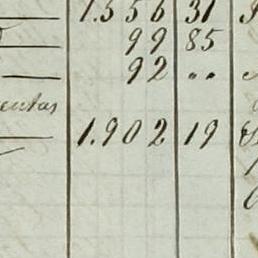 1.556 31
99 85
92 ..
entas
1.902 19